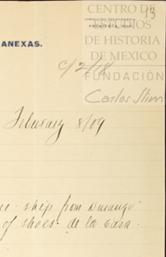 CENTRO DE
ESTUDIOS
DE HISTORIA
DE MEXICO
FUNDACIÓN
Carlos Slim
ANEXAS.
February 8/09
ship from Durango
of shoes de la Casa.